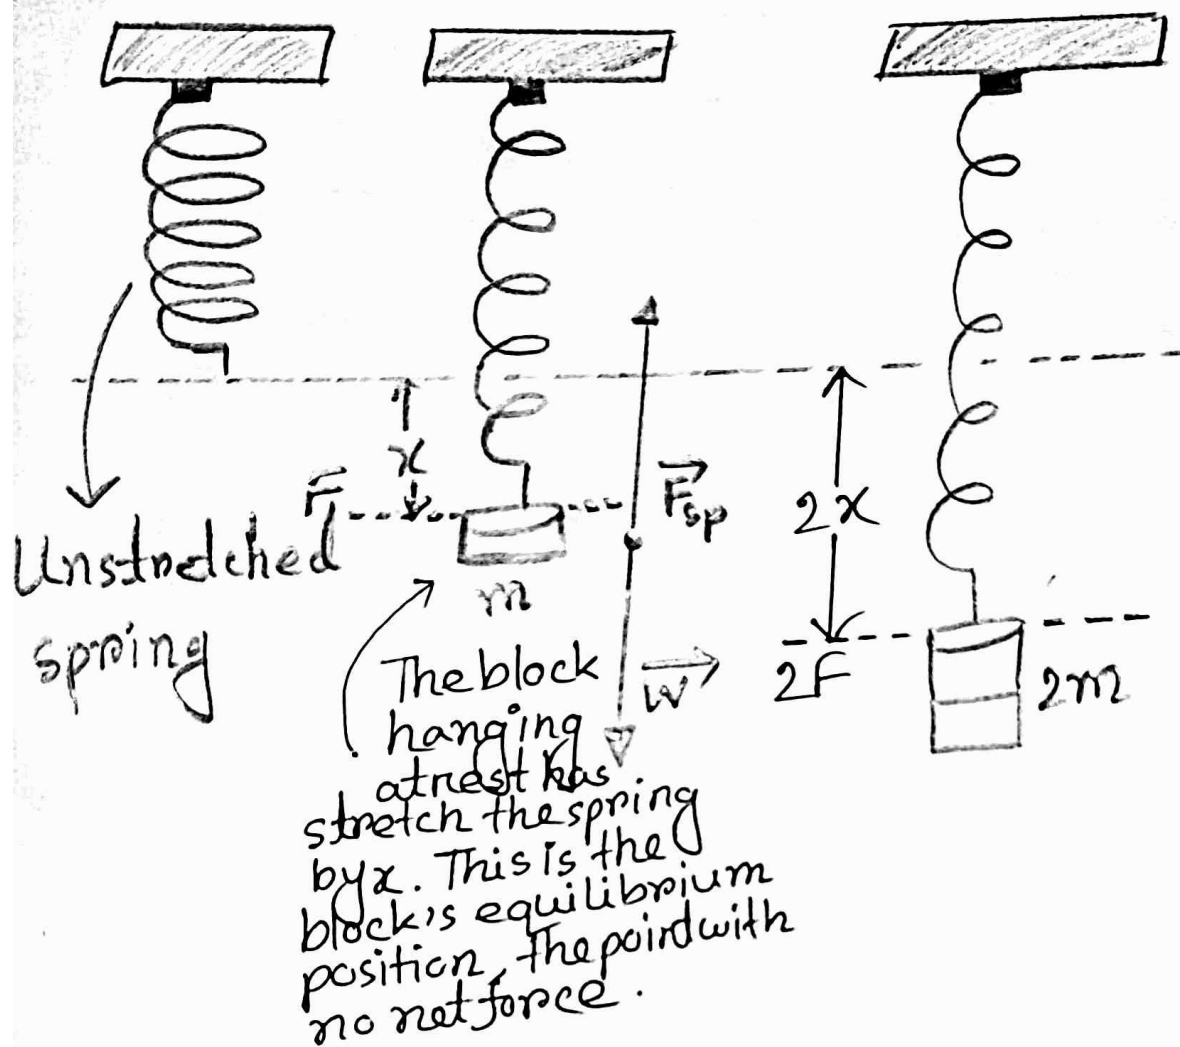 x
F
F⃗sp
2x
Unstretched
spring
m
W⃗
2F
2m
The block
hanging
at rest has
stretch the spring
by x. This is the
block's equilibrium
position, the point with
no net force.